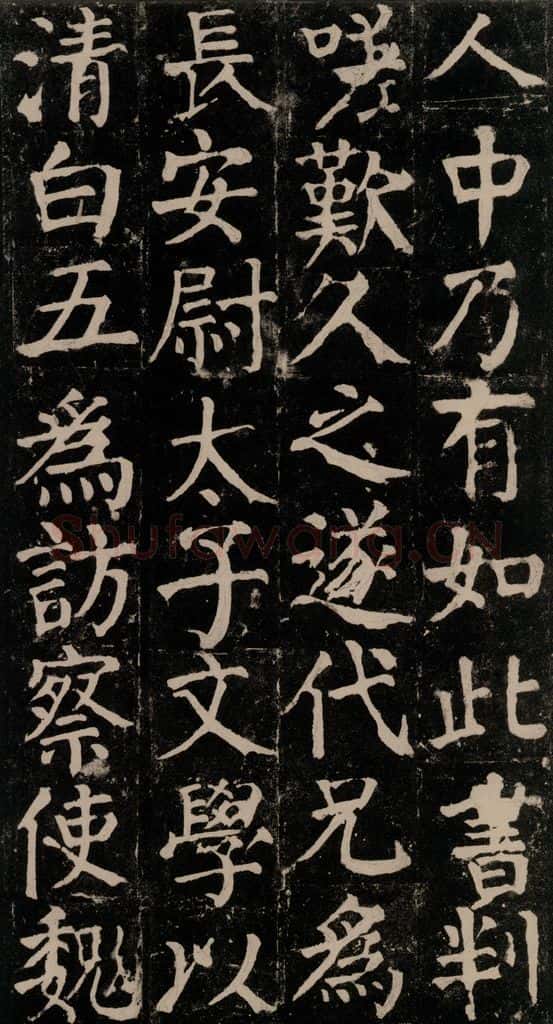 人中乃有如此書判
嗟歎久之遂代兄為
長安尉太子文學以
清白五為訪察使魏
Shufawang.CN